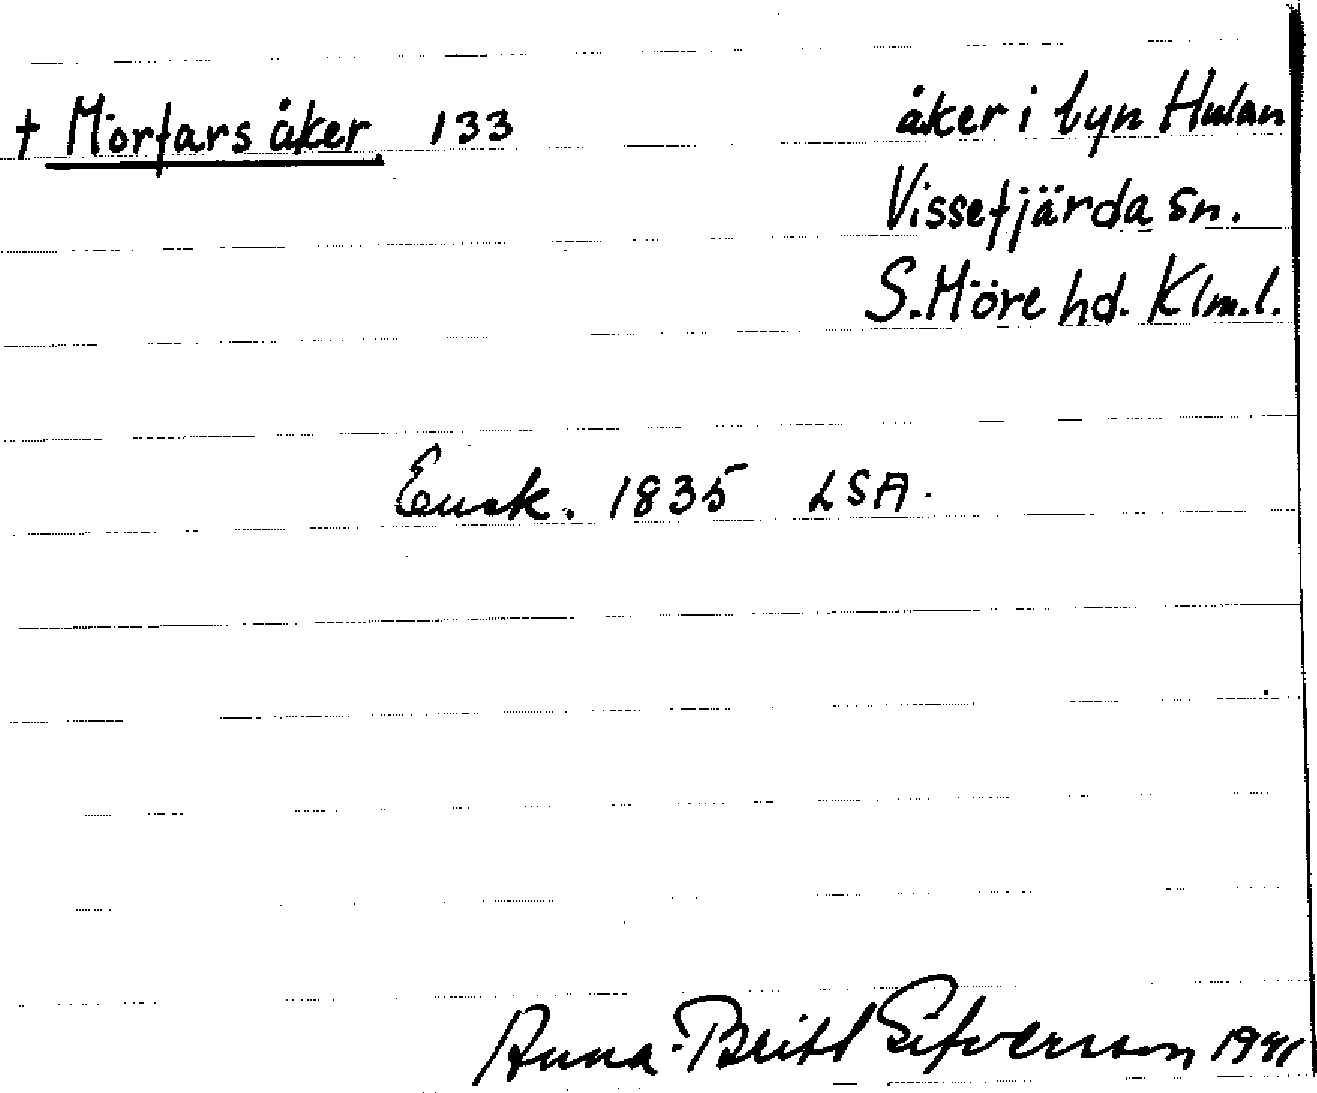 † Morfars åker 133
åker i byn Hulan
Vissefjärda sn.
S. Möre hd. Klm.l.
Ensk. 1835 LSA.
Anna-Britt Sifversson